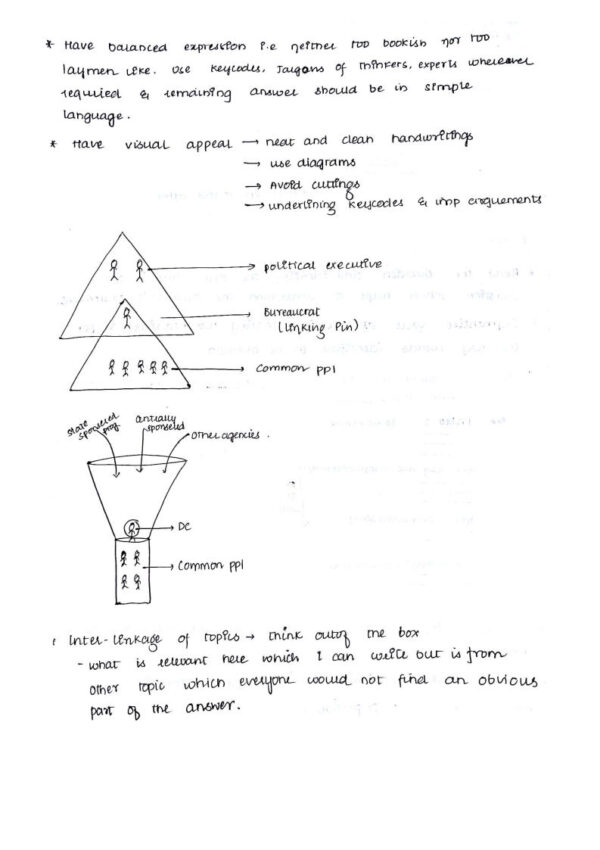 * Have balanced expression i.e neither too bookish nor too
laymen like. Use keycodes, Jargons of thinkers, experts wherever
required & remaining answer should be in simple
language.
* Have visual appeal → neat and clean handwritings
→ use diagrams
→ Avoid cuttings
→ underlining keycodes & imp arguements
→ political executive
→ Bureaucrat
(Linking Pin)
→ Common ppl
State sponsored prog
centrally sponsored
other agencies.
→ DC
→ Common ppl
Inter-linkage of topics → think out of the box
- what is relevant here which I can write but is from
other topic which everyone would not find an obvious
part of the answer.